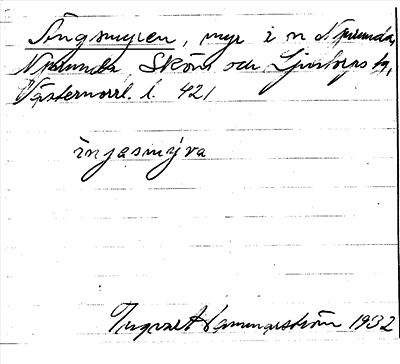 Ängsmyren, myr i n Njurunda,
Njurunda, Sköns och Ljustorps tg,
Västernorrl. l. 421
änjasmýra
Ingvar Hammarström 1932